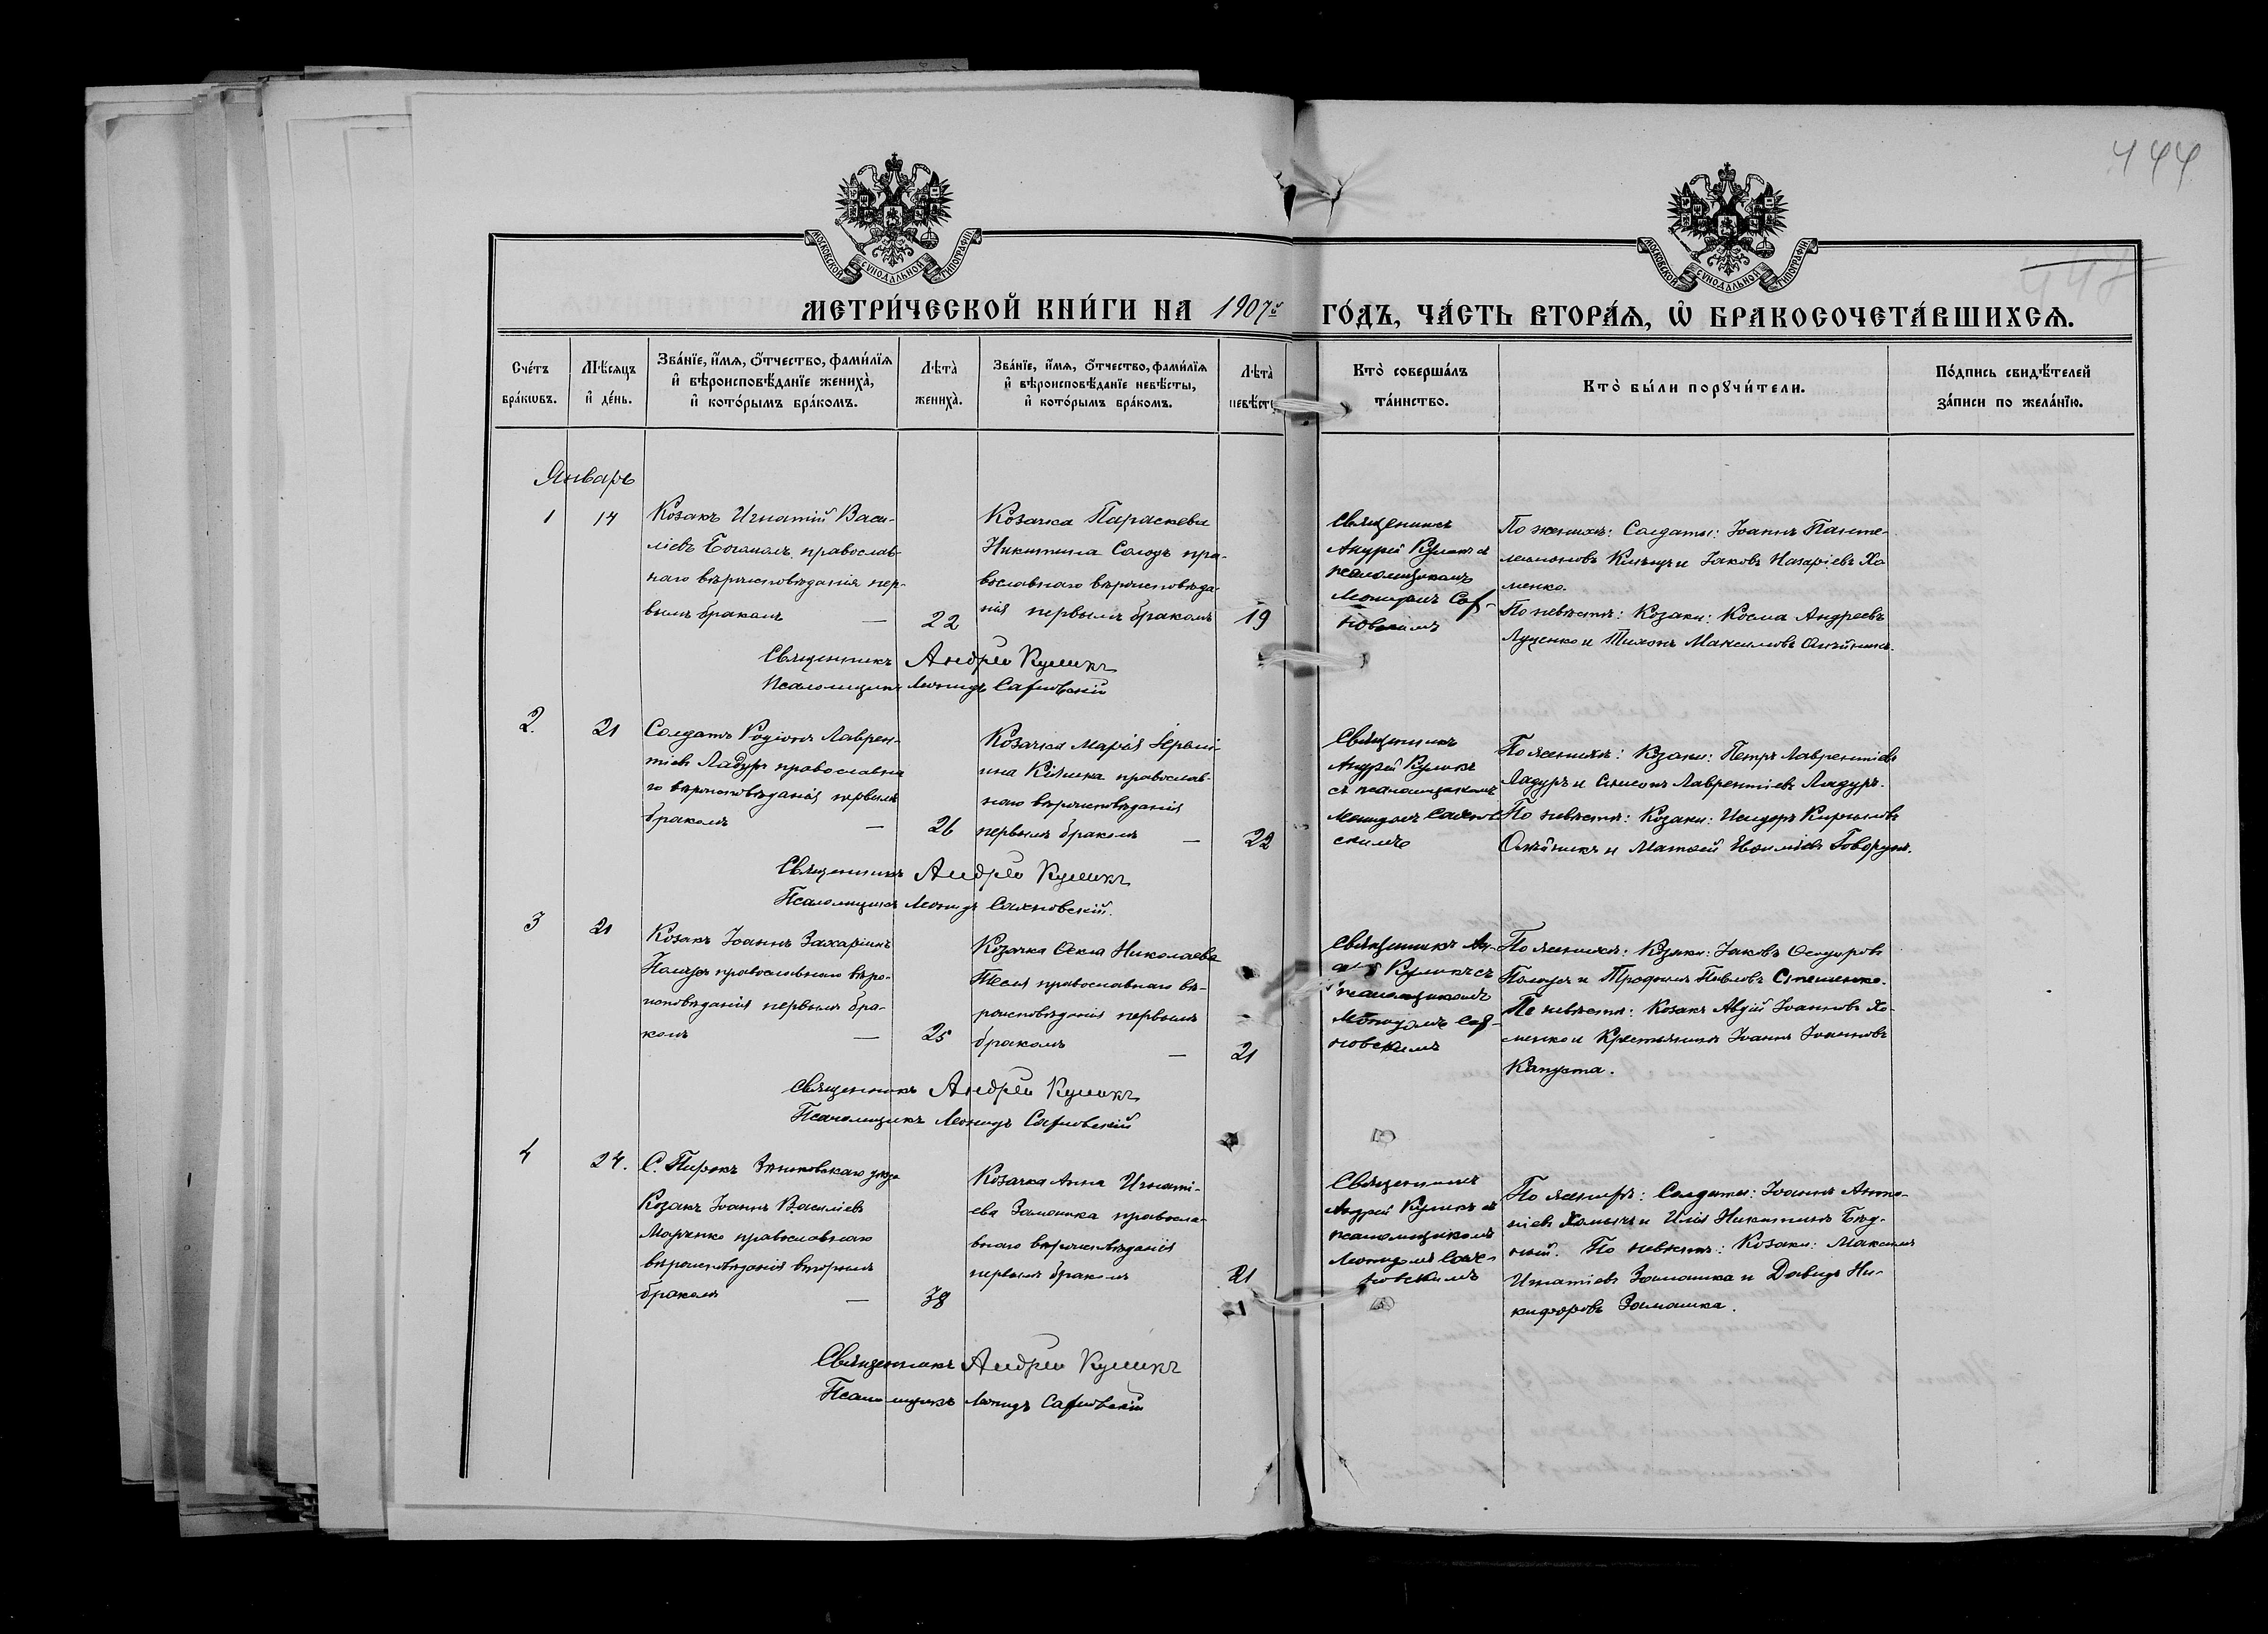 444
МОСКОВСКОЙ СУНОДАЛЬНОЙ ТИПОГРАФІИ
МОСКОВСКОЙ СУНОДАЛЬНОЙ ТИПОГРАФІИ
МЕТРИ́ЧЕСКОЙ КНИ́ГИ НА 1907й ГО́ДЪ, ЧА́СТЬ ВТОРА́Я, Ѡ БРАКОСОЧЕТА́ВШИХСЯ.
Сче́тъ бра́кѡвъ.
Мѣ́сяцъ и де́нь.
Зва́нїе, и́мя, о́тчество, фами́лїя
и вѣроисповѣ́данїе жениха̀,
и кото́рымъ бра́комъ.
Лѣта̀ жениха̀.
Зва́нїе, и́мя, о́тчество, фами́лїя
и вѣроисповѣ́данїе невѣ́сты,
и кото́рымъ бра́комъ.
Лѣта̀ невѣ́сты
Кто̀ соверша́лъ
та́инство.
Кто̀ бы́ли порꙋчи́тели.
По́дпись свидѣ́телей
за́писи по жела́нїю.
Январь
1
14
Козакъ Игнатій Васи-
ліевъ православ-
наго вѣроисповѣданія пер-
вымъ бракомъ —
22
Козачка Параскева
Никитина Солодъ пра-
вославнаго вѣроисповѣда-
нія первымъ бракомъ
19
Священникъ
Андрей Куликъ съ
псаломщикомъ
Леонидомъ Сах-
новскимъ
По женихѣ: Солдаты: Іоаннъ Панте-
леимоновъ и Іаковъ Назаріевъ Хо
менко.
По невѣстѣ: Козаки: Косма Андреевъ
Луценко и Тихонъ Максимовъ Олѣйникъ.
Священникъ Андрей Куликъ
Псаломщикъ Леонидъ Сахновскій
2.
21
Солдатъ Родіонъ Лаврен-
тіевъ Ладуръ православна
го вѣроисповѣданія первымъ
бракомъ —
26
Козачка Марія
православ-
наго вѣроисповѣданія
первымъ бракомъ —
22
Священникъ
Андрей Куликъ
съ псаломщикомъ
Леонидомъ Сахнов
скимъ
По женихѣ: Козаки: Петръ Лаврентіевъ
Ладуръ и Симеонъ Лаврентіевъ Ладуръ.
По невѣстѣ: Козаки: Исидоръ Кирилловъ
Олѣйникъ и Матѳей Говорунъ.
Священникъ Андрей Куликъ
Псаломщикъ Леонидъ Сахновскій.
3
21
Козакъ Іоаннъ Захаріинъ
православнаго вѣро-
исповѣданія первымъ бра-
комъ —
25
Козачка Ѳекла Николаева
православнаго вѣ-
роисповѣданія первымъ
бракомъ —
21
Священникъ Ан-
дрей Куликъ съ
псаломщикомъ
Леонидомъ Сах-
новскимъ
По женихѣ: Козаки: Іаковъ Ѳеодоровъ
и Трофимъ Павловъ Степаненко.
По невѣстѣ: Козакъ Авдій Іоанновъ Хо-
менко и Крестьянинъ Іоаннъ Іоанновъ
Капуста.
Священникъ Андрей Куликъ
Псаломщикъ Леонидъ Сахновскій
4
24.
С. Пирокъ Зѣньковскаго уѣзда
Козакъ Іоаннъ Василіевъ
Марченко православнаго
вѣроисповѣданія вторымъ
бракомъ —
38
Козачка Анна Игнаті-
ева православ-
внаго вѣроисповѣданія
первымъ бракомъ
21
Священникъ
Андрей Куликъ съ
псаломщикомъ
Леонидомъ Сах-
новскимъ
По женихѣ: Солдаты: Іоаннъ Анто-
ніевъ и Илія Никитинъ Бѣд-
ный. По невѣстѣ: Козаки: Максимъ
Игнатіевъ и Давидъ Ни-
кифоровъ
Священникъ Андрей Куликъ
Псаломщикъ Леонидъ Сахновскій